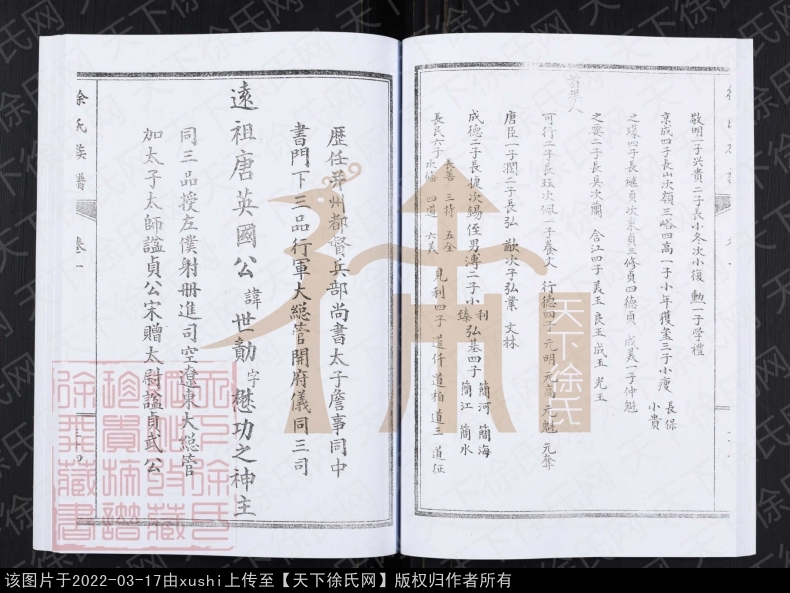 敬明一子兴貴二子長小冬次小復 勳一子学禮
京成四子長山次嶺三峪四高一子小年獲玺三子小瘦 長保 小貴
之璨四子長継貞次末貞三修貞四德貞 成義一子仲魁
之雯二子長具次蘭 含江四子義玉 良玉 成玉 光玉
可行二子長珪次佩一子養文 行德四子元明 元高 元魁 元奪
唐臣一子潤二子長弘 次子弘業 文林
成德二子長捷次錫侄男溥二子小利 小臻 弘基四子 簡河 簡海 簡江 簡水
長民六子 長善 三持 五全 四道 六義 見利四子 道仟 道柏 道三 道征
徐氏族譜
卷一
歷任并州都督兵部尚書太子詹事同中
書門下三品行軍大總管開府儀同三司
遠祖唐英國公諱世勣字懋功之神主
同三品授左僕射册進司空遼東大總管
加太子太師謚貞公宋贈太尉謚貞武公
天下徐氏
该图片于2022-03-17由xushi上传至【天下徐氏网】版权归作者所有